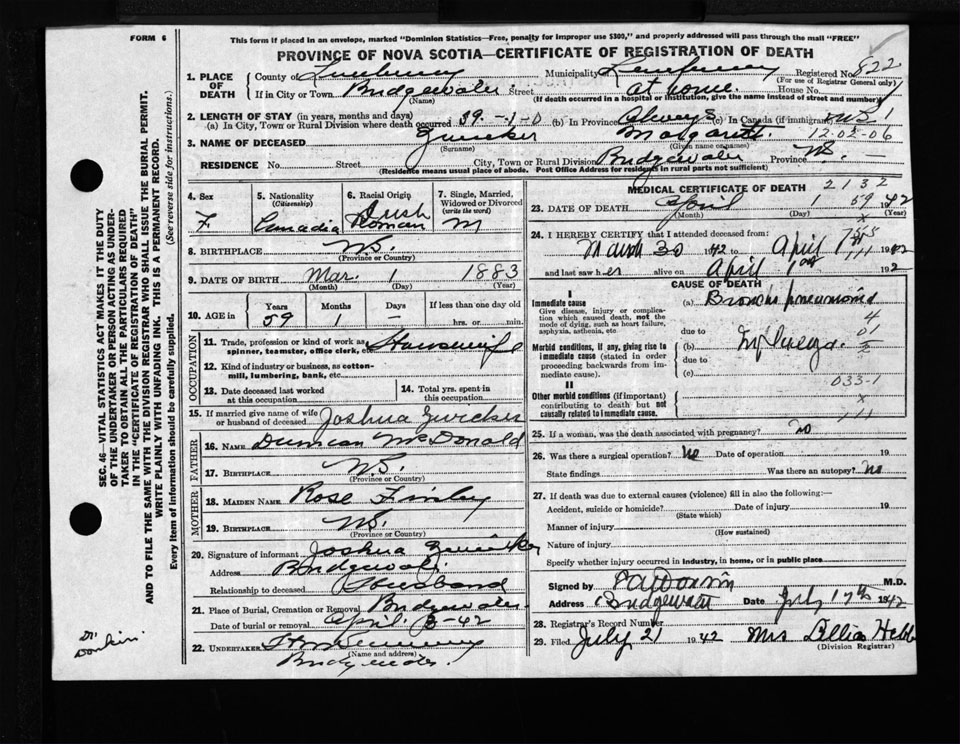 FORM 6
This form if placed in an envelope, marked "Dominion Statistics—Free, penalty for improper use $300," and properly addressed will pass through the mail "FREE"
PROVINCE OF NOVA SCOTIA—CERTIFICATE OF REGISTRATION OF DEATH
822
1. PLACE OF DEATH County of Lunenburg Municipality Lunenburg Registered No.
(For use of Registrar General only)
If in City or Town Bridgewater Street at home. House No.
(Name) (If death occurred in a hospital or institution, give the name instead of street and number)
2. LENGTH OF STAY (in years, months and days)
(a) In City, Town or Rural Division where death occurred 39-1-0 (b) In Province Always (c) In Canada (if immigrant)
12-02-06
3. NAME OF DECEASED Zwicker Margaret
(Surname) (Given name or names)
RESIDENCE No. Street City, Town or Rural Division Bridgewater Province N.S.
(Residence means usual place of abode. Post Office Address for residents in rural parts not sufficient)
4. Sex F
5. Nationality (Citizenship) Canadia
6. Racial Origin Irish
7. Single, Married, Widowed or Divorced (write the word) M
8. BIRTHPLACE N.S.
(Province or Country)
9. DATE OF BIRTH Mar. 1 1883
(Month) (Day) (Year)
10. AGE in Years 59 Months 1 Days – If less than one day old
hrs. or min.
OCCUPATION
11. Trade, profession or kind of work as spinner, teamster, office clerk, etc. Housewife
12. Kind of industry or business, as cotton-mill, lumbering, bank, etc.
13. Date deceased last worked at this occupation
14. Total yrs. spent in this occupation
15. If married give name of wife or husband of deceased Joshua Zwicker
FATHER
16. NAME Duncan McDonald
17. BIRTHPLACE N.S.
(Province or Country)
MOTHER
18. MAIDEN NAME Rose Finley
19. BIRTHPLACE N.S.
(Province or Country)
20. Signature of informant Joshua Zwicker
Address Bridgewater
Relationship to deceased Husband
21. Place of Burial, Cremation or Removal Bridgewater
Date of burial or removal April 3-42
22. UNDERTAKER
(Name and address)
Bridgewater.
MEDICAL CERTIFICATE OF DEATH 2132
23. DATE OF DEATH April 1 1942
(Month) (Day) (Year)
24. I HEREBY CERTIFY that I attended deceased from:
March 30 1942 to April 1st 1942
and last saw her alive on April 1st 1942
CAUSE OF DEATH
I
Immediate cause
Give disease, injury or complication which caused death, not the mode of dying, such as heart failure, asphyxia, asthenia, etc
(a) Broncho pneumonia
due to
Morbid conditions, if any, giving rise to immediate cause (stated in order proceeding backwards from immediate cause).
(b) Influenza.
due to
(c)
033-1
II
Other morbid conditions (if important) contributing to death but not causally related to immediate cause.
25. If a woman, was the death associated with pregnancy? No
26. Was there a surgical operation? No Date of operation 19
State findings Was there an autopsy? No
27. If death was due to external causes (violence) fill in also the following:—
Accident, suicide or homicide? Date of injury 19
(State which)
Manner of injury
(How sustained)
Nature of injury
Specify whether injury occurred in industry, in home, or in public place
Signed by M.D.
Address Bridgewater Date July 17th 1942
28. Registrar's Record Number
29. Filed July 21 1942 Mrs Lillian Hebb
(Division Registrar)
SEC. 46—VITAL STATISTICS ACT MAKES IT THE DUTY OF THE UNDERTAKER OR PERSON ACTING AS UNDERTAKER TO OBTAIN ALL THE PARTICULARS REQUIRED IN THE "CERTIFICATE OF REGISTRATION OF DEATH" AND TO FILE THE SAME WITH THE DIVISION REGISTRAR WHO SHALL ISSUE THE BURIAL PERMIT.
WRITE PLAINLY WITH UNFADING INK. THIS IS A PERMANENT RECORD.
Every item of information should be carefully supplied. (See reverse side for instructions.)